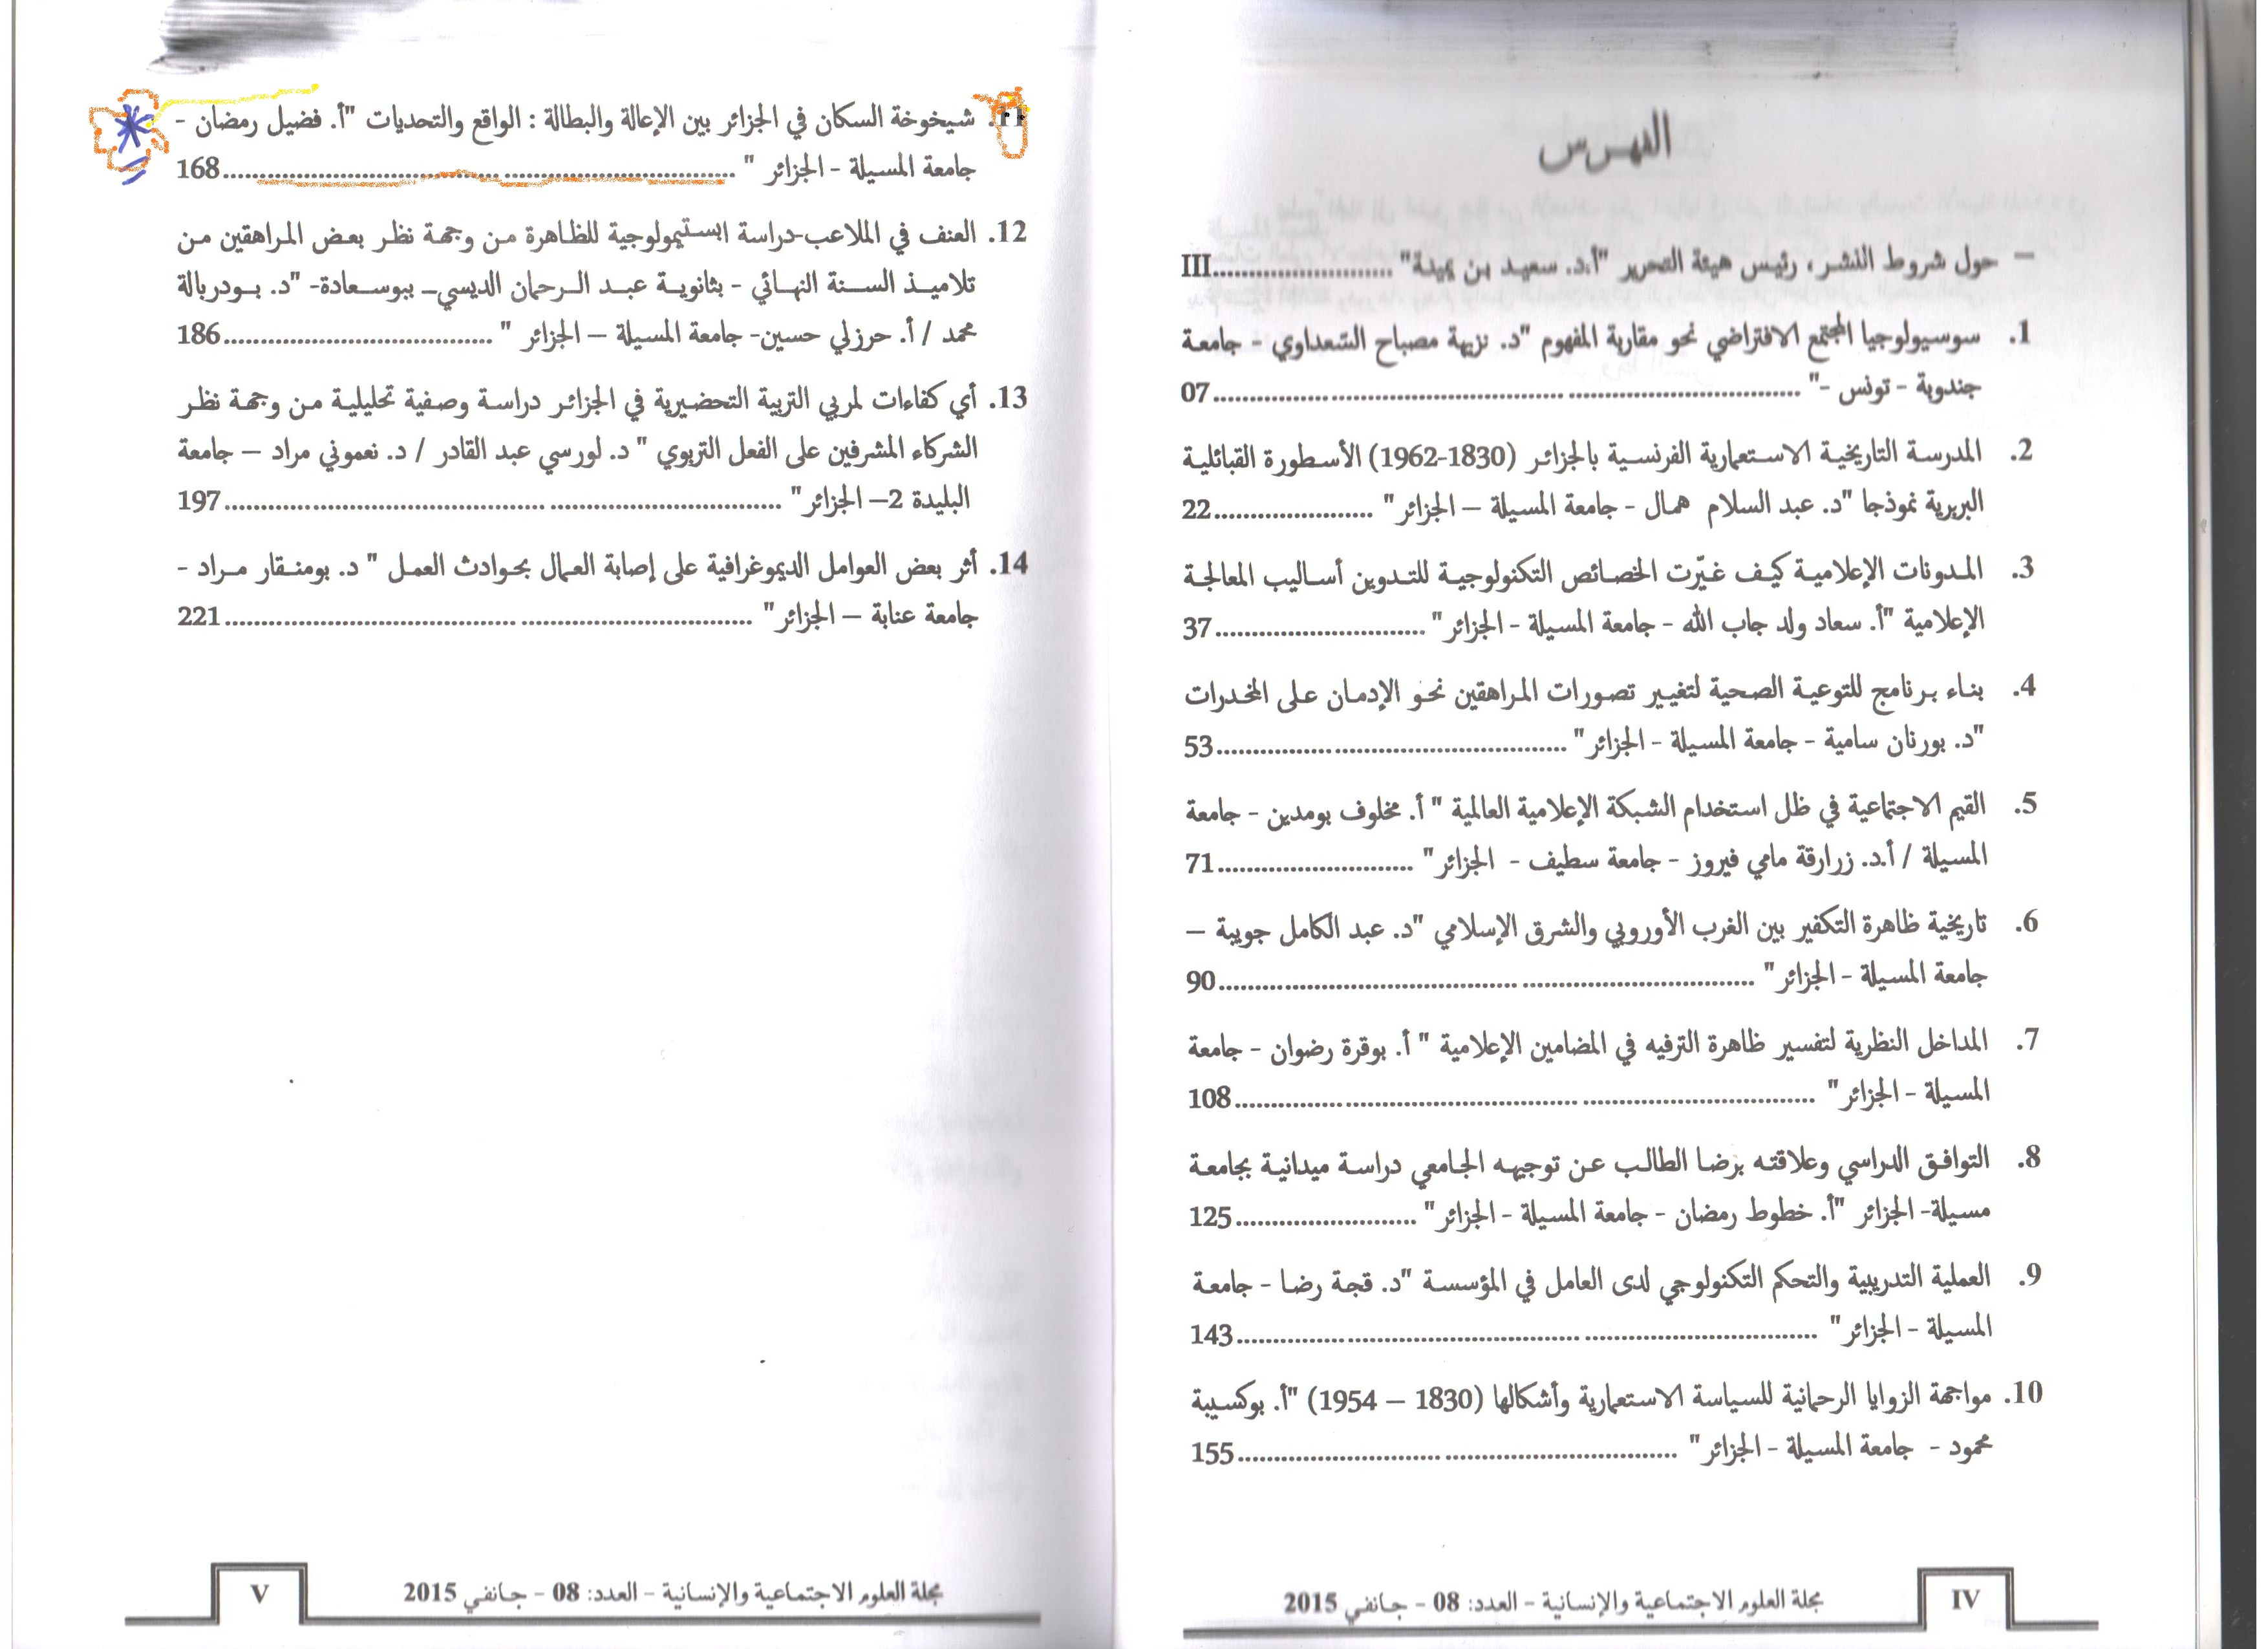 الفهرس
– حول شروط النشر، رئيس هيئة التحرير "أ.د. سعيد بن يمينة" ............................III
1. سوسيولوجيا المجتمع الافتراضي نحو مقاربة المفهوم "د. نزيهة مصباح السّعداوي - جامعة
جندوبة - تونس -" ............................07
2. المدرسة التاريخية الاستعمارية الفرنسية بالجزائر (1830-1962) الأسطورة القبائلية
البربرية نموذجا "د. عبد السلام همال - جامعة المسيلة – الجزائر" ............................22
3. المدونات الإعلامية كيف غيّرت الخصائص التكنولوجية للتدوين أساليب المعالجة
الإعلامية "أ. سعاد ولد جاب الله - جامعة المسيلة - الجزائر" ............................37
4. بناء برنامج للتوعية الصحية لتغيير تصورات المراهقين نحو الإدمان على المخدرات
"د. بورنان سامية - جامعة المسيلة - الجزائر" ............................53
5. القيم الاجتماعية في ظل استخدام الشبكة الإعلامية العالمية " أ. مخلوف بومدين - جامعة
المسيلة / أ.د. زرارقة مامي فيروز - جامعة سطيف - الجزائر" ............................71
6. تاريخية ظاهرة التكفير بين الغرب الأوروبي والشرق الإسلامي "د. عبد الكامل جويبة –
جامعة المسيلة - الجزائر" ............................90
7. المداخل النظرية لتفسير ظاهرة الترفيه في المضامين الإعلامية " أ. بوقرة رضوان - جامعة
المسيلة - الجزائر" ............................108
8. التوافق الدراسي وعلاقته برضا الطالب عن توجيهه الجامعي دراسة ميدانية بجامعة
مسيلة- الجزائر "أ. خطوط رمضان - جامعة المسيلة - الجزائر" ............................125
9. العملية التدريبية والتحكم التكنولوجي لدى العامل في المؤسسة "د. قجة رضا - جامعة
المسيلة - الجزائر" ............................143
10. مواجهة الزوايا الرحمانية للسياسة الاستعمارية وأشكالها (1830 – 1954) "أ. بوكسيبة
محمود - جامعة المسيلة - الجزائر" ............................155
مجلة العلوم الاجتماعية والإنسانية - العدد: 08 - جانفي 2015
IV
11. شيخوخة السكان في الجزائر بين الإعالة والبطالة : الواقع والتحديات "أ. فضيل رمضان -
جامعة المسيلة - الجزائر " ............................168
12. العنف في الملاعب-دراسة ابستيمولوجية للظاهرة من وجهة نظر بعض المراهقين من
تلاميذ السنة النهائي - بثانوية عبد الرحمان الديسي– ببوسعادة- "د. بودربالة
محمد / أ. حرزلي حسين- جامعة المسيلة – الجزائر " ............................186
13. أي كفاءات لمربي التربية التحضيرية في الجزائر دراسة وصفية تحليلية من وجهة نظر
الشركاء المشرفين على الفعل التربوي " د. لورسي عبد القادر / د. نعموني مراد – جامعة
البليدة 2– الجزائر" ............................197
14. أثر بعض العوامل الديموغرافية على إصابة العمال بحوادث العمل " د. بومنقار مراد -
جامعة عنابة – الجزائر" ............................221
مجلة العلوم الاجتماعية والإنسانية - العدد: 08 - جانفي 2015
V